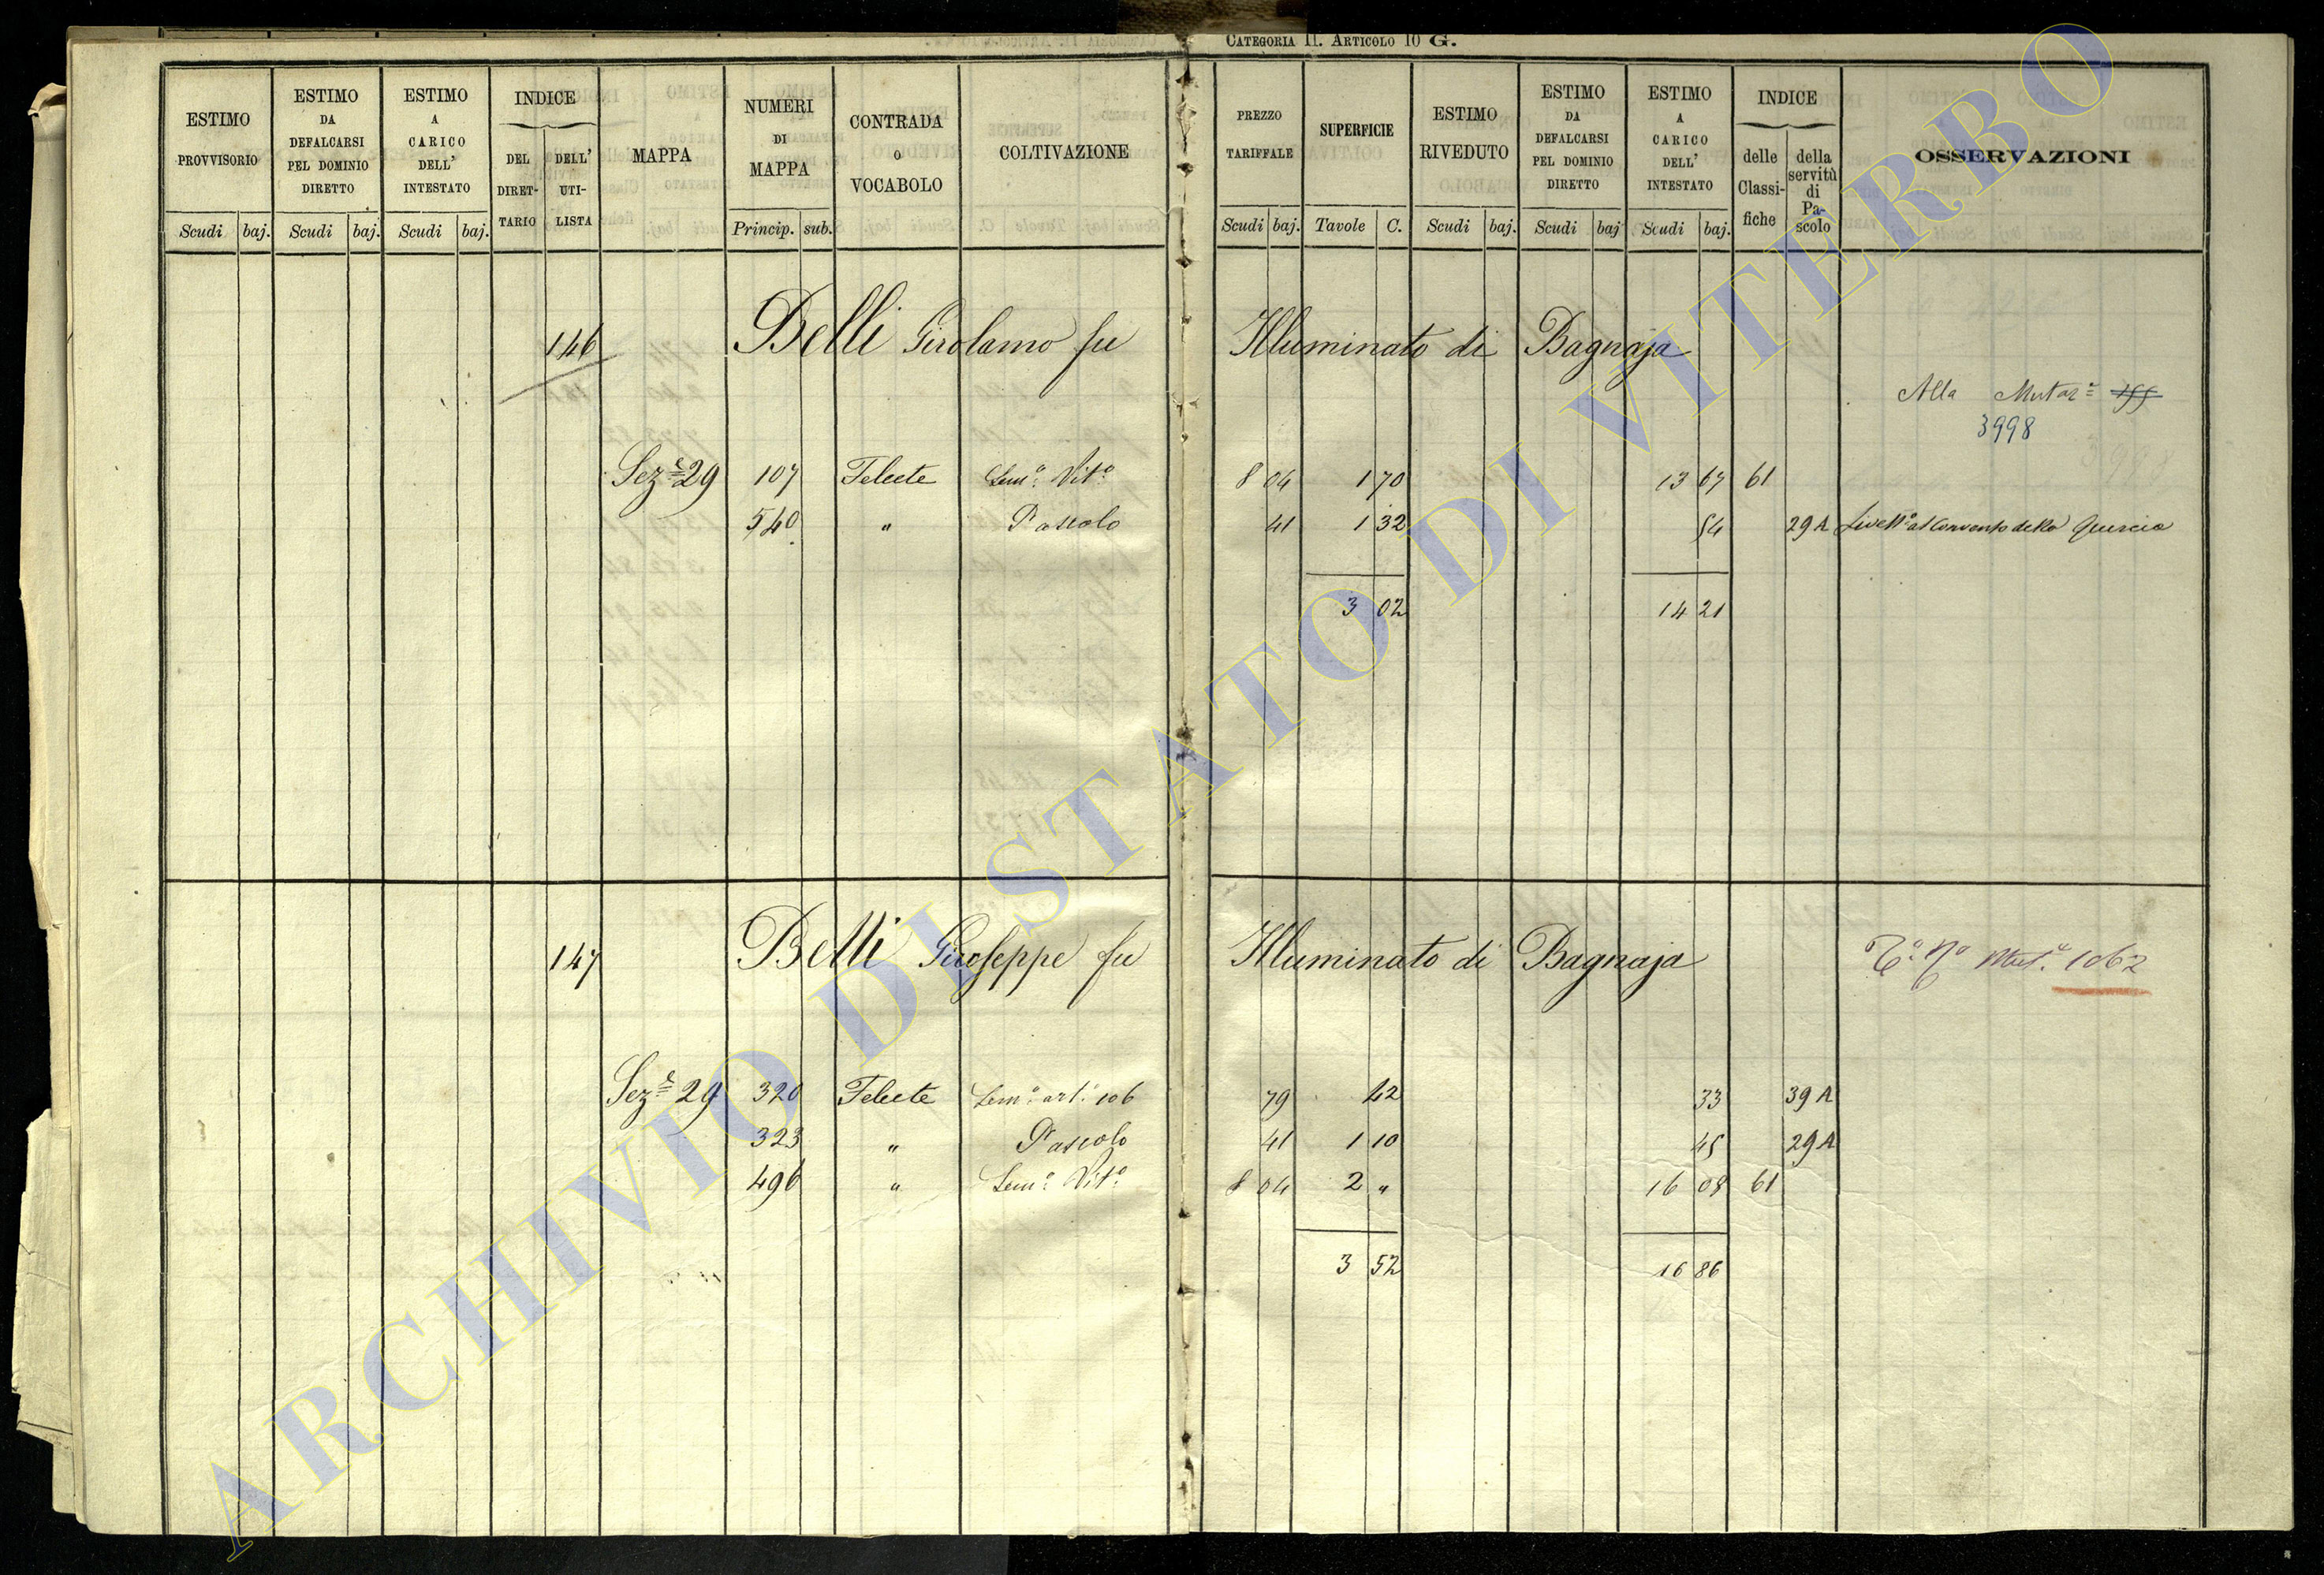 CATEGORIA II. ARTICOLO 10 G.
ESTIMO PROVVISORIO
Scudi baj.
ESTIMO DA DEFALCARSI PEL DOMINIO DIRETTO
Scudi baj.
ESTIMO A CARICO DELL' INTESTATO
Scudi baj.
INDICE
DEL DIRET- TARIO
DELL' UTI- LISTA
MAPPA
NUMERI DI MAPPA
Princip. sub.
CONTRADA O VOCABOLO
COLTIVAZIONE
PREZZO TARIFFALE
Scudi baj.
SUPERFICIE
Tavole C.
ESTIMO RIVEDUTO
Scudi baj.
ESTIMO DA DEFALCARSI PEL DOMINIO DIRETTO
Scudi baj
ESTIMO A CARICO DELL' INTESTATO
Scudi baj.
INDICE
delle Classi- fiche
della servitù di Pa- scolo
OSSERVAZIONI
146 Belli Girolamo fu Illuminato di Bagnaja
Alla Mutaz.e
3998
Sez.e 29 107 Felcete Sem.o Vit.o 8 04 1 70 13 67 61
540 " Pascolo 41 1 32 54 29 A Livell.o al Convento della Quercia
3 02 14 21
147 Belli Giuseppe fu Illuminato di Bagnaja
Mut.e 1062
Sez.e 29 320 Felcete Sem.o art.o 106 79 42 33 39 A
323 " Pascolo 41 1 10 45 29 A
496 " Sem.o Vit.o 8 04 2 " 16 08 61
3 52 16 86
ARCHIVIO DI STATO DI VITERBO